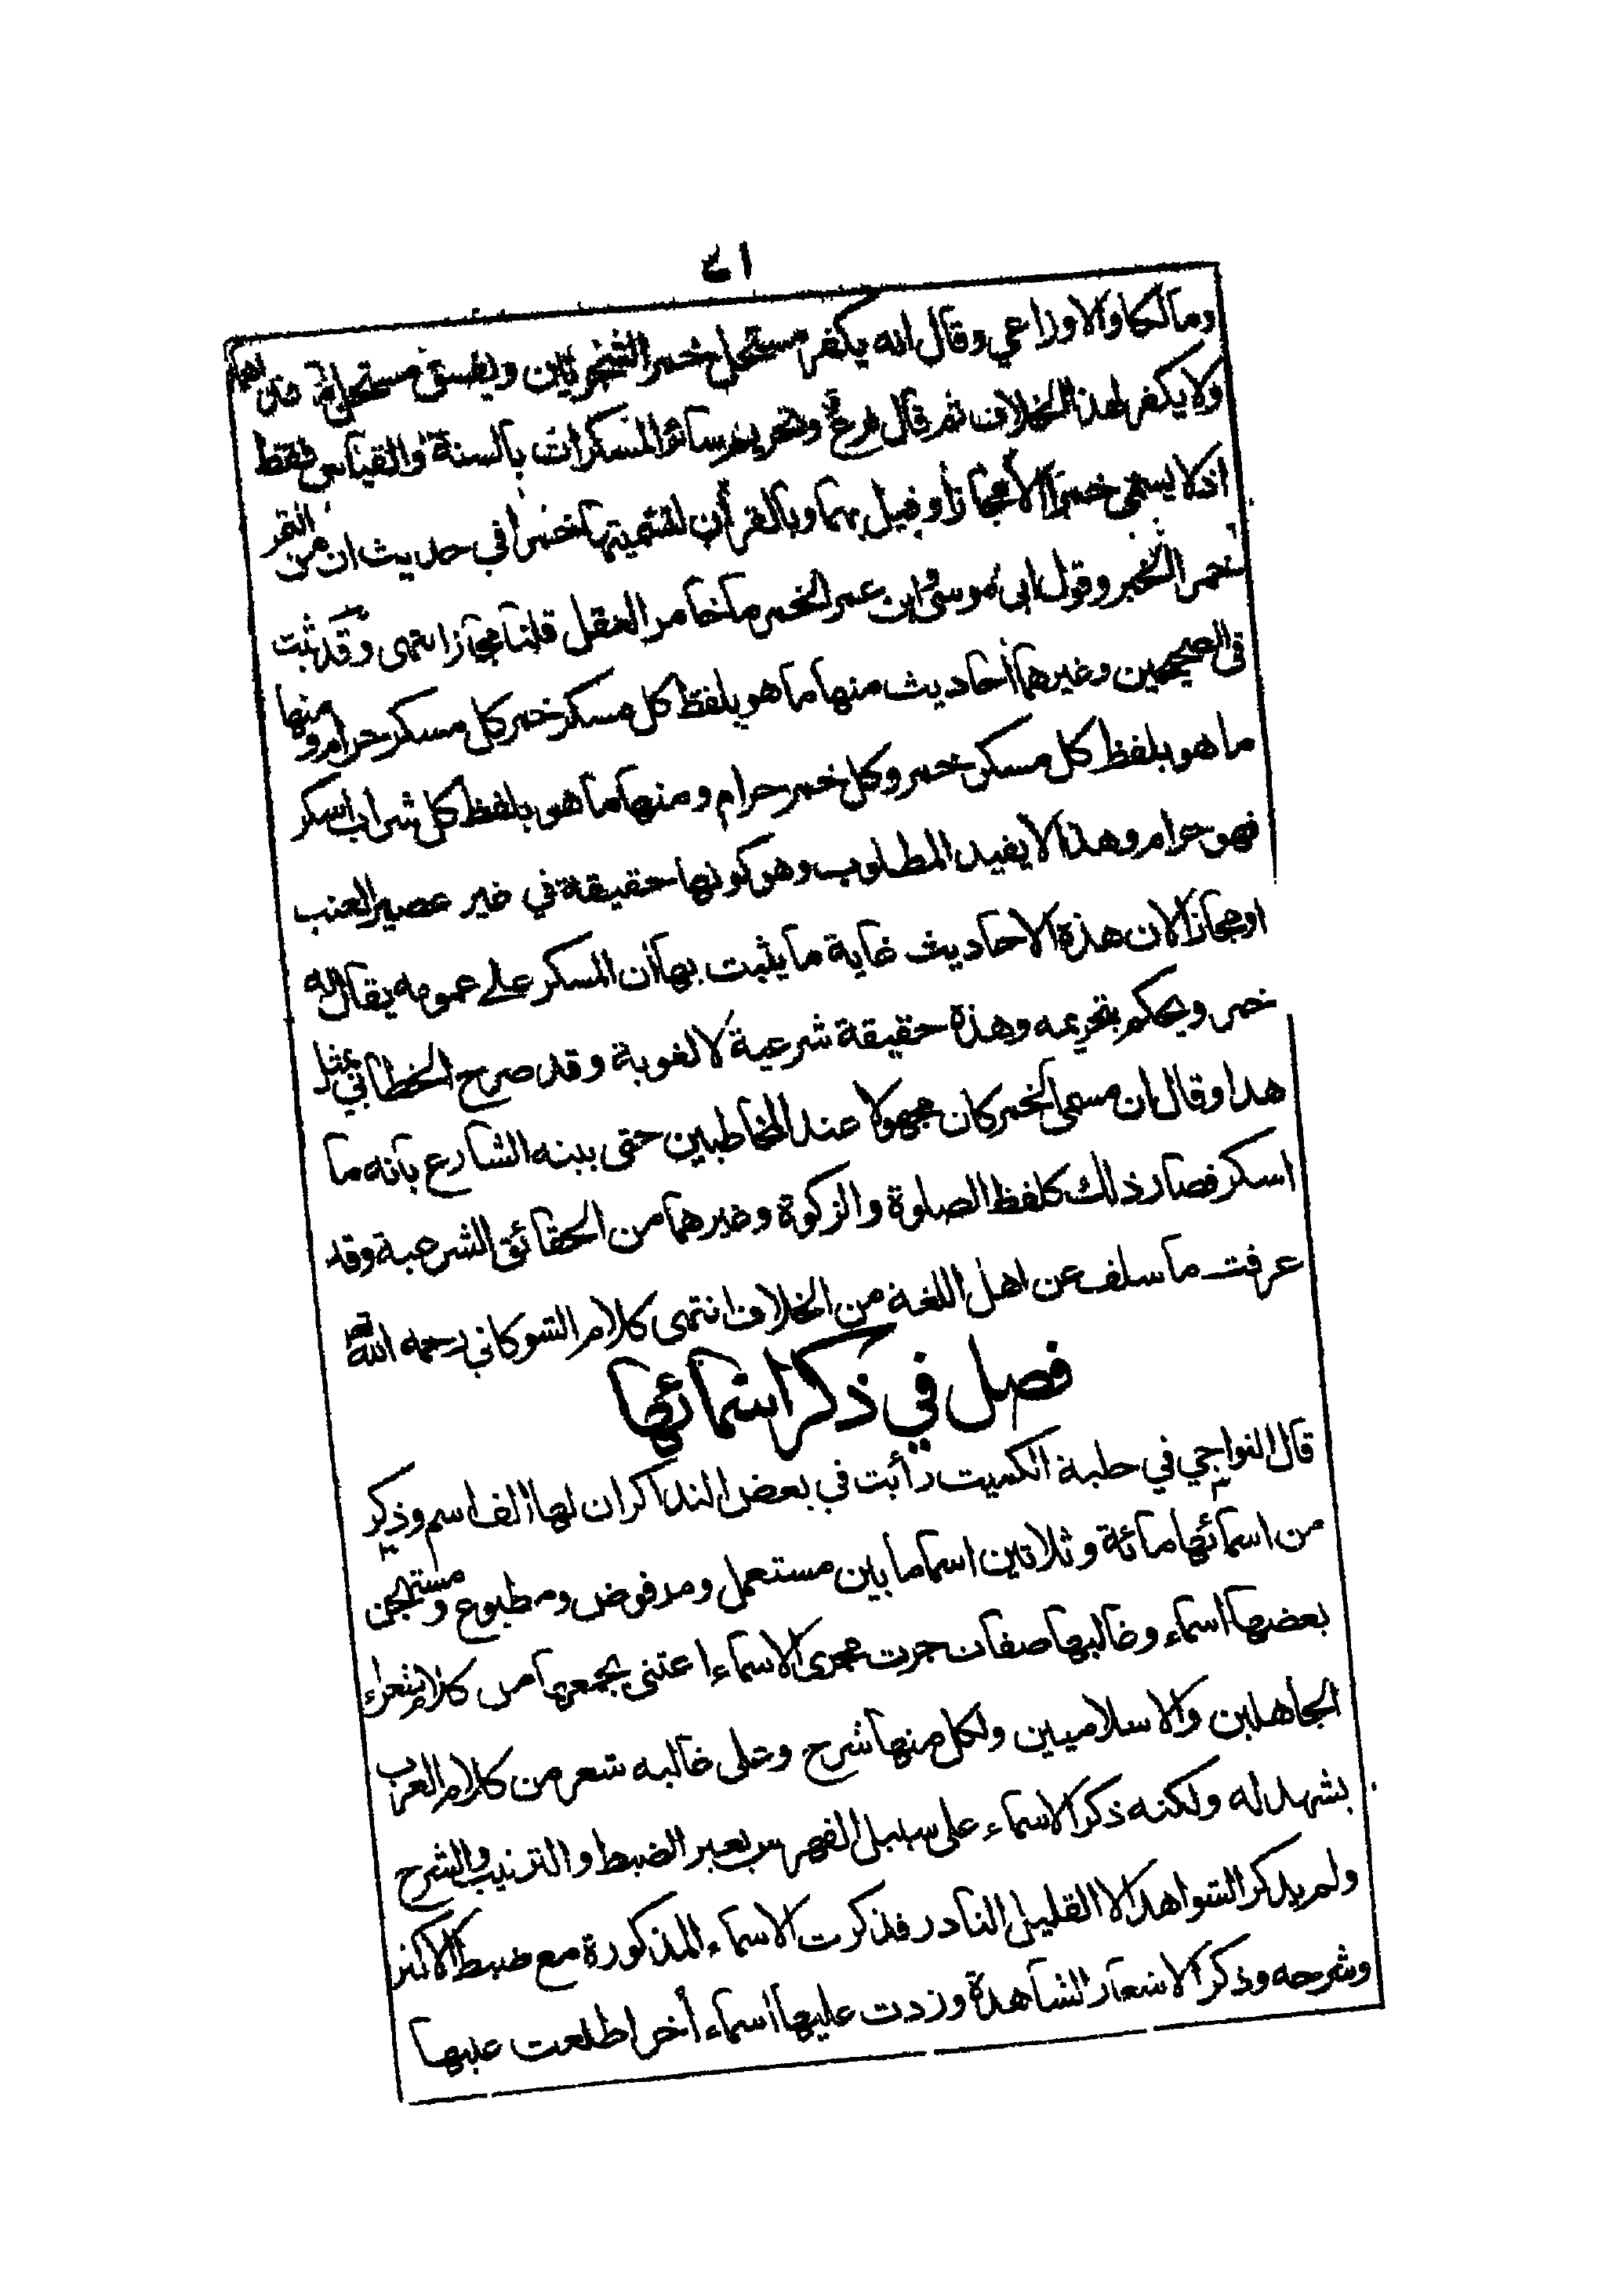 ٤١
ومالكا والاوزاعي وقال انه يكفر مستحل خمر الشجرتين ويفسق مستحل
ولا يكفر لهذا الخلاف ثم قال فرع وتحريم سائر المسكرات بالسنة والقياس فقط
اذ لا يسمى خمرا الا مجازا وقيل بهما وبالقرأن لتسميتها خمرا في حديث ان من التمر
الخمر وقول ابى موسى وابن عمر الخمر ما خامر العقل قلنا مجازا انتهى وقد ثبت
فى الصحيحين وغيرهما أحاديث منها ما هو بلفظ كل مسكر خمر كل مسكر حرام ومنها
ما هو بلفظ كل مسكر خمر وكل خمر حرام ومنها ما هو بلفظ كل شراب اسكر
فهو حرام وهذا لا يفيد المطلوب وهو كونها حقيقة في غير عصير العنب
او مجازا لان هذه الاحاديث غاية ما يثبت بها أن المسكر على عمومه يقال له
خمر ويحكم بتحريمه وهذه حقيقة شرعية لا لغوية وقد صرح الخطابي بمثل
هذا وقال ان مسمى الخمر كان مجهولا عند المخاطبين حتى بينه الشارع بانه ما
اسكر فصار ذلك كلفظ الصلوة والزكوة وغيرهما من الحقائق الشرعية وقد
عرفت ما سلف عن اهل اللغة من الخلاف انتهى كلام الشوكاني رحمه الله
فصل في ذكر اسمائها
قال النواجي في حلبة الكميت رأيت في بعض التذاكر ان لها الف اسم وذكر
من اسمائها مائة وثلاثين اسما ما بين مستعمل ومرفوض ومطبوع ومستهجن
بعضها اسماء وغالبها صفات جرت مجرى الاسماء اعتنى بجمعها من كلام شعراء
الجاهلين والاسلاميين ولكل منها شرح وعلى غالبه شعر من كلام العرب
يشهد له ولكنه ذكر الاسماء على سبيل الفهرس بغير الضبط والترتيب والشرح
ولم يذكر الشواهد الا القليل النادر فذكرت الاسماء المذكورة مع ضبط الاكثر
وشرحه وذكر الاشعار الشاهدة وزدت عليها اسماء أخر اطلعت عليها